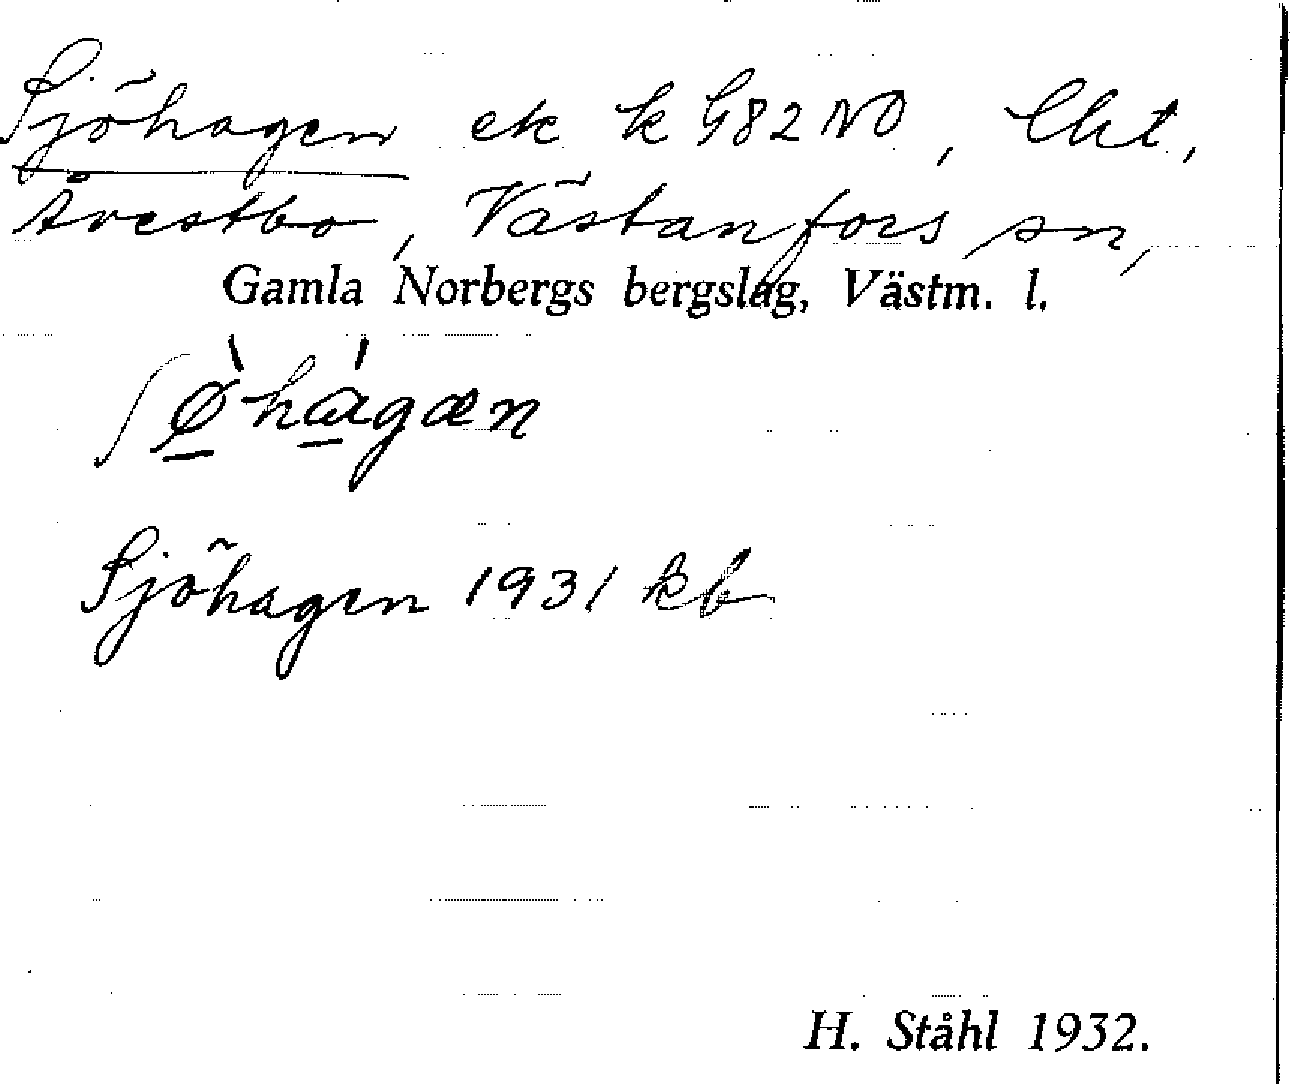 Sjöhagen ek k G82 NO, Cht,
Ävestbo, Västanfors sn,
Gamla Norbergs bergslag, Västm. l.
ʃø̱̀há̱gæn
Sjöhagen 1931 kb
H. Ståhl 1932.